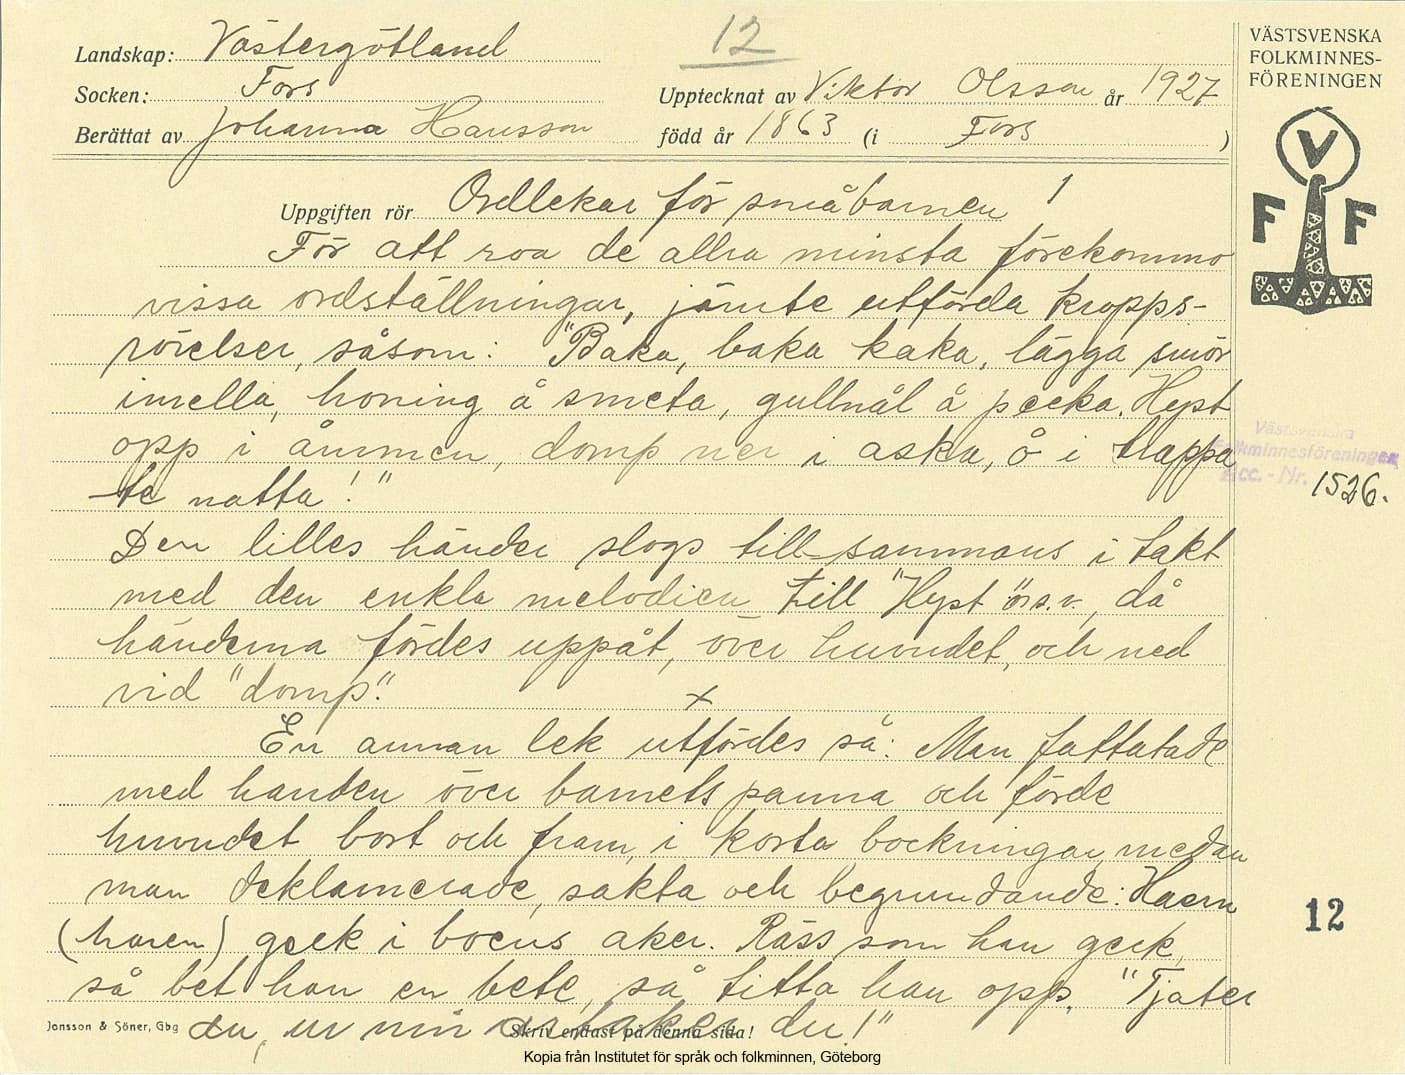 12
Landskap: Västergötland
Socken: Fors
Upptecknat av Viktor Olsson år 1927
Berättat av Johanna Hansson
född år 1863 (i Fors )
VÄSTSVENSKA
FOLKMINNES-
FÖRENINGEN
V
F F
Uppgiften rör Ordlekar för småbarnen 1
För att roa de allra minsta förekommo
vissa ordställningar, jämte utförda kropps-
rörelser, såsom: "Baka, baka kaka, lägga smör
imella, honing å smeta, gullnål å pecka. Hyst
opp i ånmen, domp ner i aska, å i trappa
te natta!"
Den lilles händer slogs till sammans i takt
med den enkla melodien till "Hyst" o.s.v., då
händerna fördes uppåt, över huvudet, och ned
vid "domp".
x
En annan lek utfördes så: Man fattatade
med handen över barnets panna och förde
huvudet bort och fram, i korta bockningar, medan
man deklamerade, sakta och begrundande: Haern
(haren) geck i boens aker. Räss som han geck,
så bet han en bete, så titta han opp. "Tjater
du, ur min aker du!"
Västsvenska
Folkminnesföreningen
Acc.-Nr. 1526.
12
Jonsson & Söner, Gbg
Skriv endast på denna sida!
Kopia från Institutet för språk och folkminnen, Göteborg